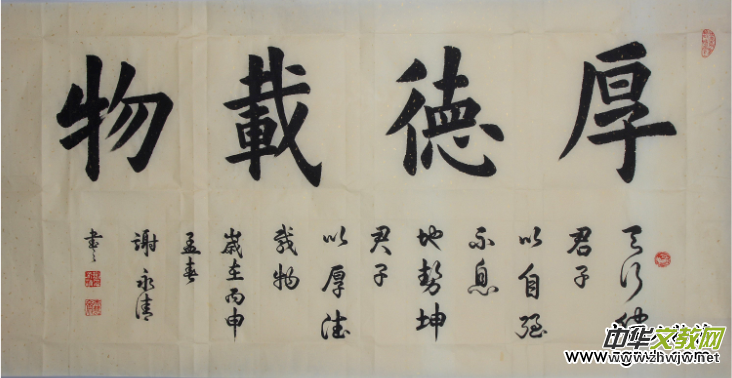 厚德載物
天行健
君子
以自强
不息
地勢坤
君子
以厚德
载物
歲在丙申
孟春
謝永清
書
中华文教网